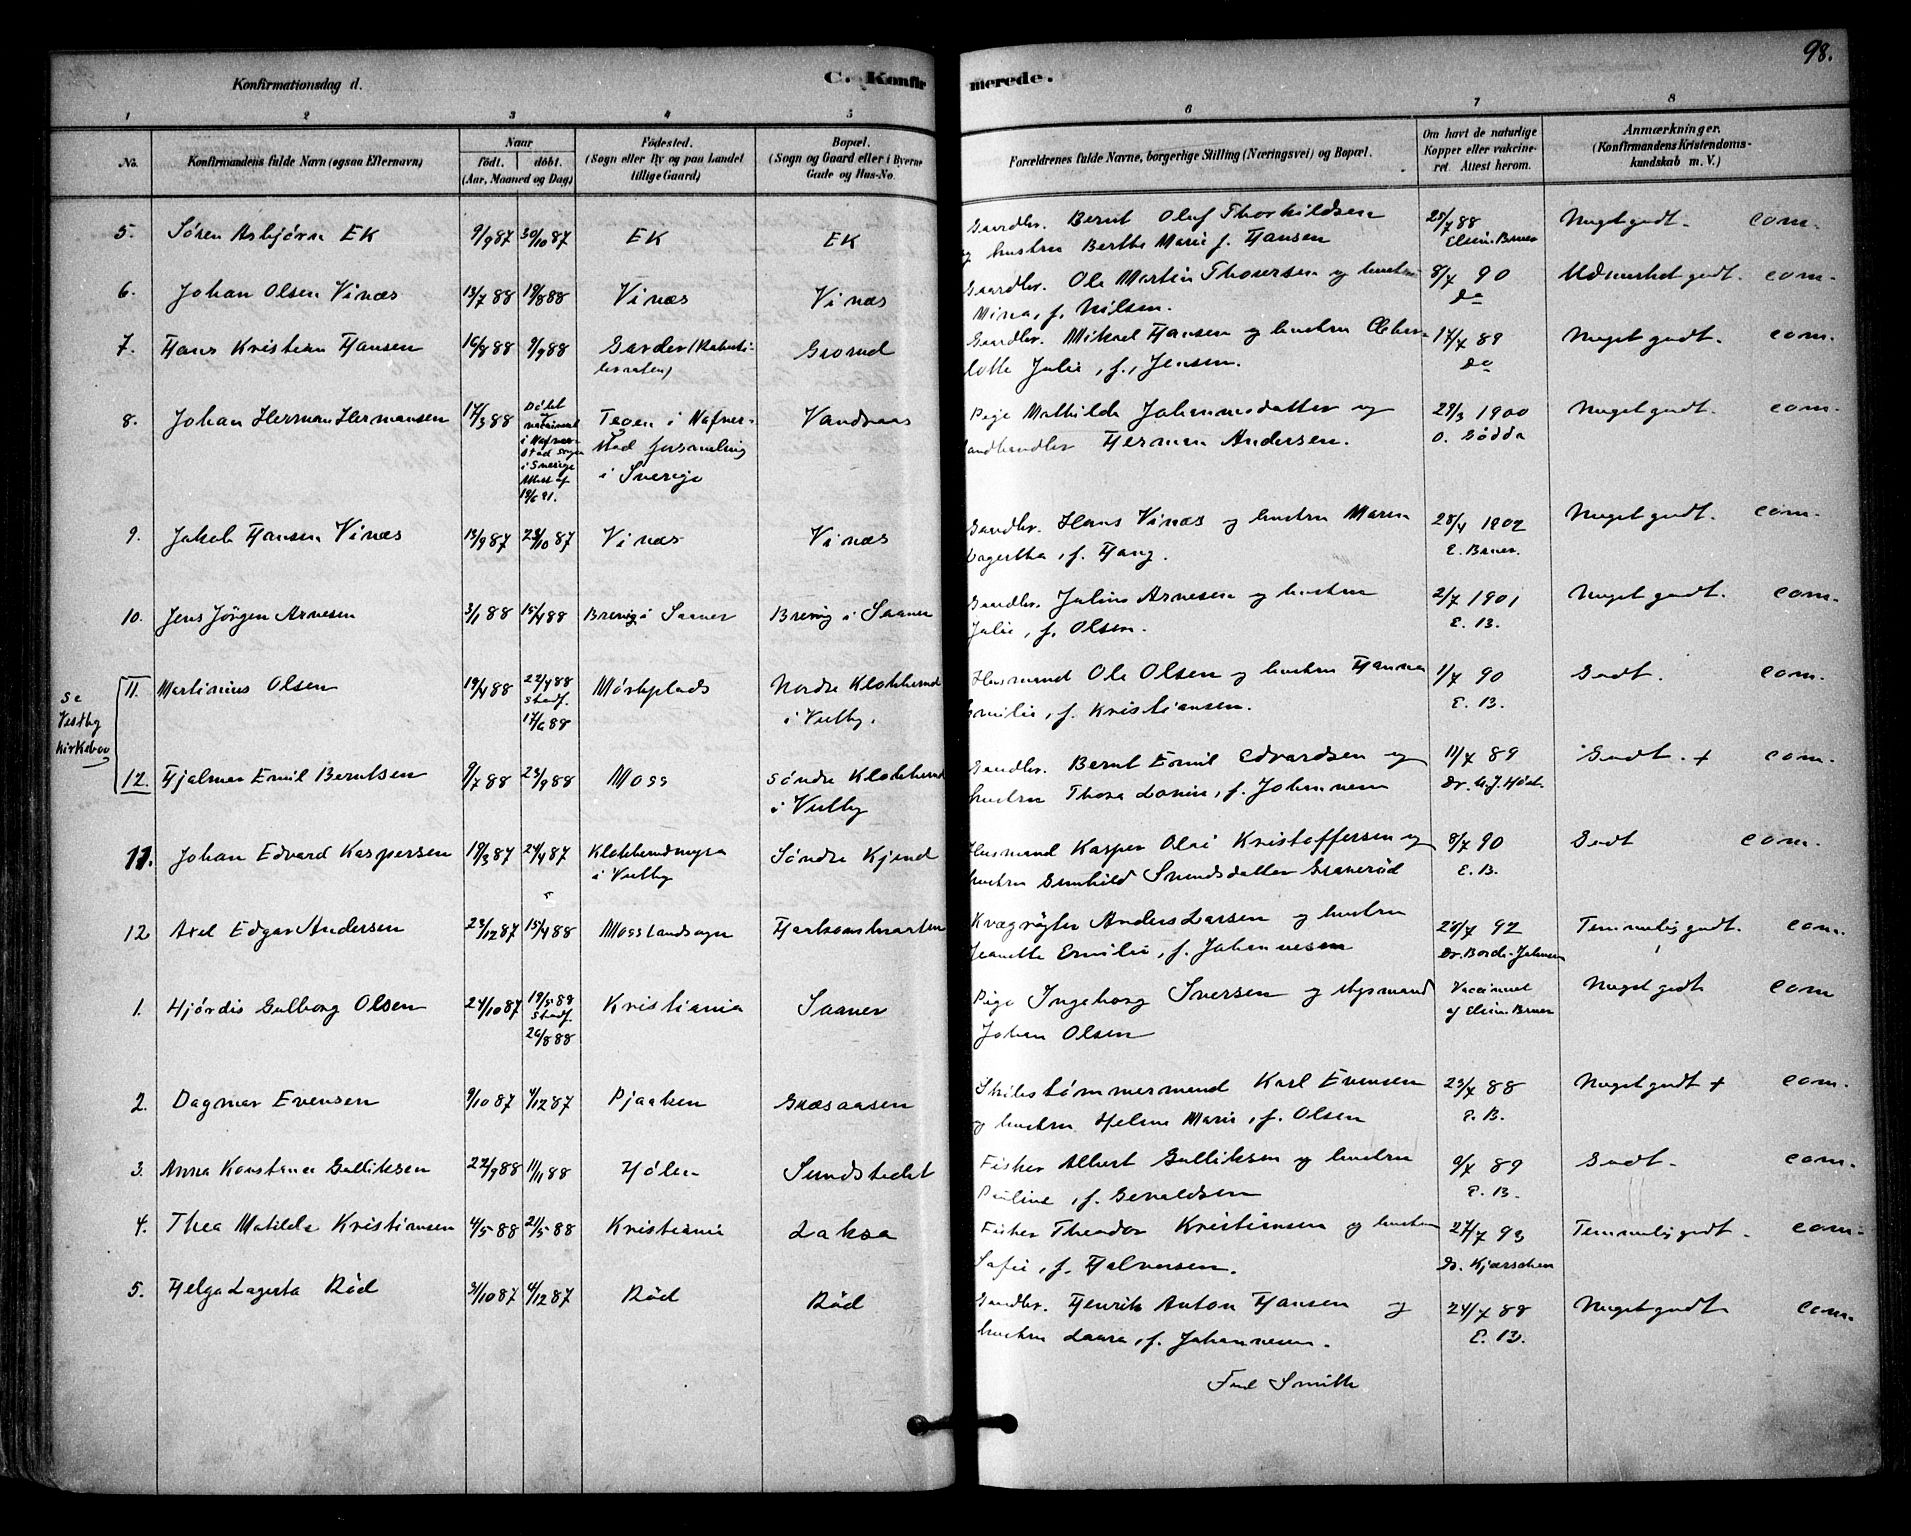 98.
Konfirmationsdag d.
C. Konfir merede.
1 2 3 4 5 6 7 8
No. Konfirmandens fulde Navn (ogsaa Efternavn) Naar født. døbt. (Aar, Maaned og Dag) Fødested. (Sogn eller By og paa Landet tillige Gaard) Bopæl. (Sogn og Gaard eller i Byerne Gade og Hus-No.
Forældrenes fulde Navne, borgerlige Stilling (Næringsvei) og Bopæl. Om havt de naturlige Kopper eller vakcineret. Attest herom. Anmærkninger. (Konfirmandens Kristendomskundskab m. V.)
5. Søren Asbjørn Ek 9/9 87 30/10 87 Ek Ek Gaardbr. Bernt Oluf Thorkildsen 25/7 88 Meget godt. com.
og hustru Berthe Marie f. Hansen Elise Bruer
6. Johan Olsen Vinæs 13/7 88 19/8 88 Vinæs Vinæs Gaardbr. Ole Martin Thoversen og hustru 8/7 90 Udmerket godt. com.
Mina, f. Nilsen. do
7. Hans Kristian Hansen 16/8 88 9/9 88 Garder Gaardbr. Mikael Hansen og hustru 17/7 89 Meget godt. com.
lotte Julie, f. Jensen. do
8. Johan Herman Hermansen 17/3 88 Døbt i Nafverstad sogn i Sverige Attest af 19/6 91. i Nafverstad forsamling i Sverige Vandsaas Pige Mathilde Johannesdatter og 29/3 1900 Meget godt. com.
Landhandler Herman Andersen. O. Gødda
9. Jakob Hansen Vinæs 13/9 87 23/10 87 Vinæs Vinæs Gaardbr. Hans Vinæs og hustru Maren 28/4 1902 Meget godt. com.
Lagertha, f. Hang. E. Bruer.
10. Jens Jørgen Arnesen 3/1 88 15/4 88 Brevig i Saaner Brevig i Saaner Gaardbr. Julius Arnesen og hustru 2/7 1901 Meget godt. com.
Julie, f. Olsen. E. B.
Se Vestby kirkebog
11. Martinius Olsen 19/4 88 22/4 88 Stadf. 17/6 88 Mørkplads Nordre Klokkerud i Vestby. Husmand Ole Olsen og hustru Hanna 1/7 90 Godt. com.
Emilie, f. Kristiansen. E. B.
12. Hjalmar Emil Berntsen 9/7 88 23/9 88 Moss Søndre Klokkerud i Vestby Gaardbr. Bernt Emil Edvardsen og 11/7 89 Godt. + com.
hustru Thora Lovise, f. Johannesen
11. Johan Edvard Kaspersen 19/3 87 24/4 87 Klokkerudmyra i Vestby Søndre Kjend Husmand Kasper Olai Kristoffersen og 8/7 90 Godt com.
hustru Gunhild Svendsdatter Granerød E. B.
12 Axel Edgar Andersen 23/12 87 15/4 88 Moss landsogn Kvægrøgter Anders Larsen og hustru 28/7 92 Temmelig godt. com.
Jeanette Emilie, f. Johannesen
1. Hjørdis Gulborg Olsen 24/10 87 19/5 88 Stadf. 26/8 88 Kristiania Saaner Pige Ingeborg Iversen og Styrmand Vaccineret Meget godt com
Johan Olsen af Elise Bruer
2. Dagmar Evensen 9/10 87 4/12 87 Pjaaken Græsaasen Skibstømmermand Karl Evensen 23/7 88 Meget godt + com.
og hustru Helene Marie, f. Olsen E. B.
3. Anna Konstanse Gulliksen 22/9 88 11/11 88 Hølen Sundstedet Fisker Albert Gulliksen og hustru 9/7 89 Godt. com.
Pauline, f. Gevaldsen E. B.
4. Thea Matilde Kristiansen 4/5 88 21/5 88 Kristiania Laksa Fisker Theodor Kristiansen og hustru 27/7 93 Temmelig godt. com.
Sofie, f. Halvorsen.
5. Helga Lagerta Rød 31/10 87 4/12 87 Rød Rød Gaardbr. Henrik Anton Hansen og 24/7 88 Meget godt. com.
hustru Laura, f. Johannesen. E. B.
Smith